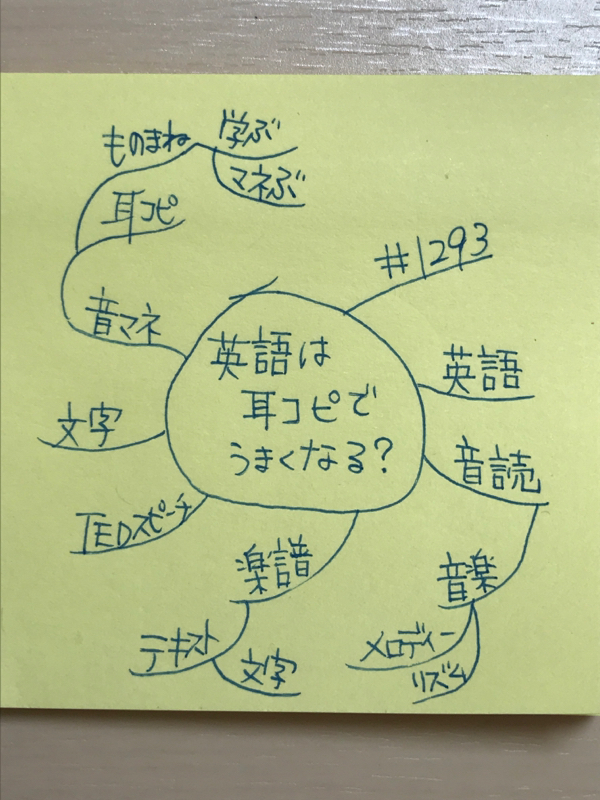 英語は
耳コピで
うまくなる?
#1293
英語
音読
音楽
メロディー
リズム
楽譜
テキスト
文字
TEDスピーチ
文字
音マネ
耳コピ
ものまね
学ぶ
マネぶ